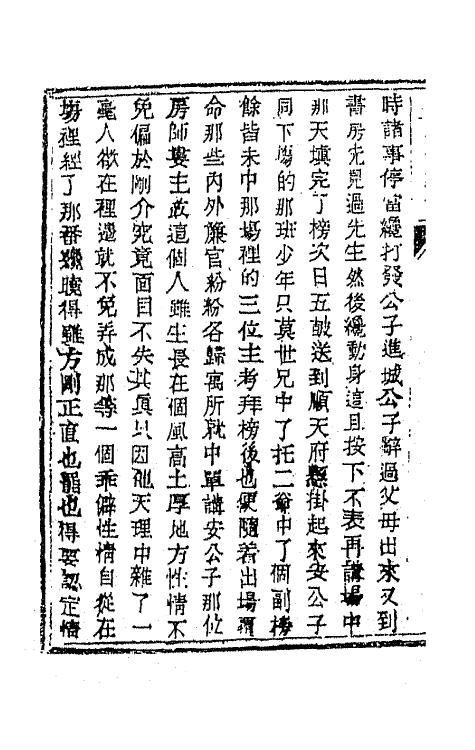 時諸事停當纔打發公子進城公子辭過父母出來又到
書房先見過先生然後纔動身這且按下不表再講場中
那天填完了榜次日五鼓送到順天府懸掛起來安公子
同下場的那班少年只莫世兄中了托二爺中了個副榜
餘皆未中那場裡的三位主考拜榜後也便隨着出場覆
命那些內外簾官紛紛各歸寓所就中單講安公子那位
房師婁主政這個人雖生長在個風高土厚地方性情不
免偏於剛介究竟面目不失其真只因他天理中雜了一
毫人欲在裡邊就不免弄成那等一個乖僻性情自從在
場裡經了那番纔曉得雖方剛正直也罷也得要認定情